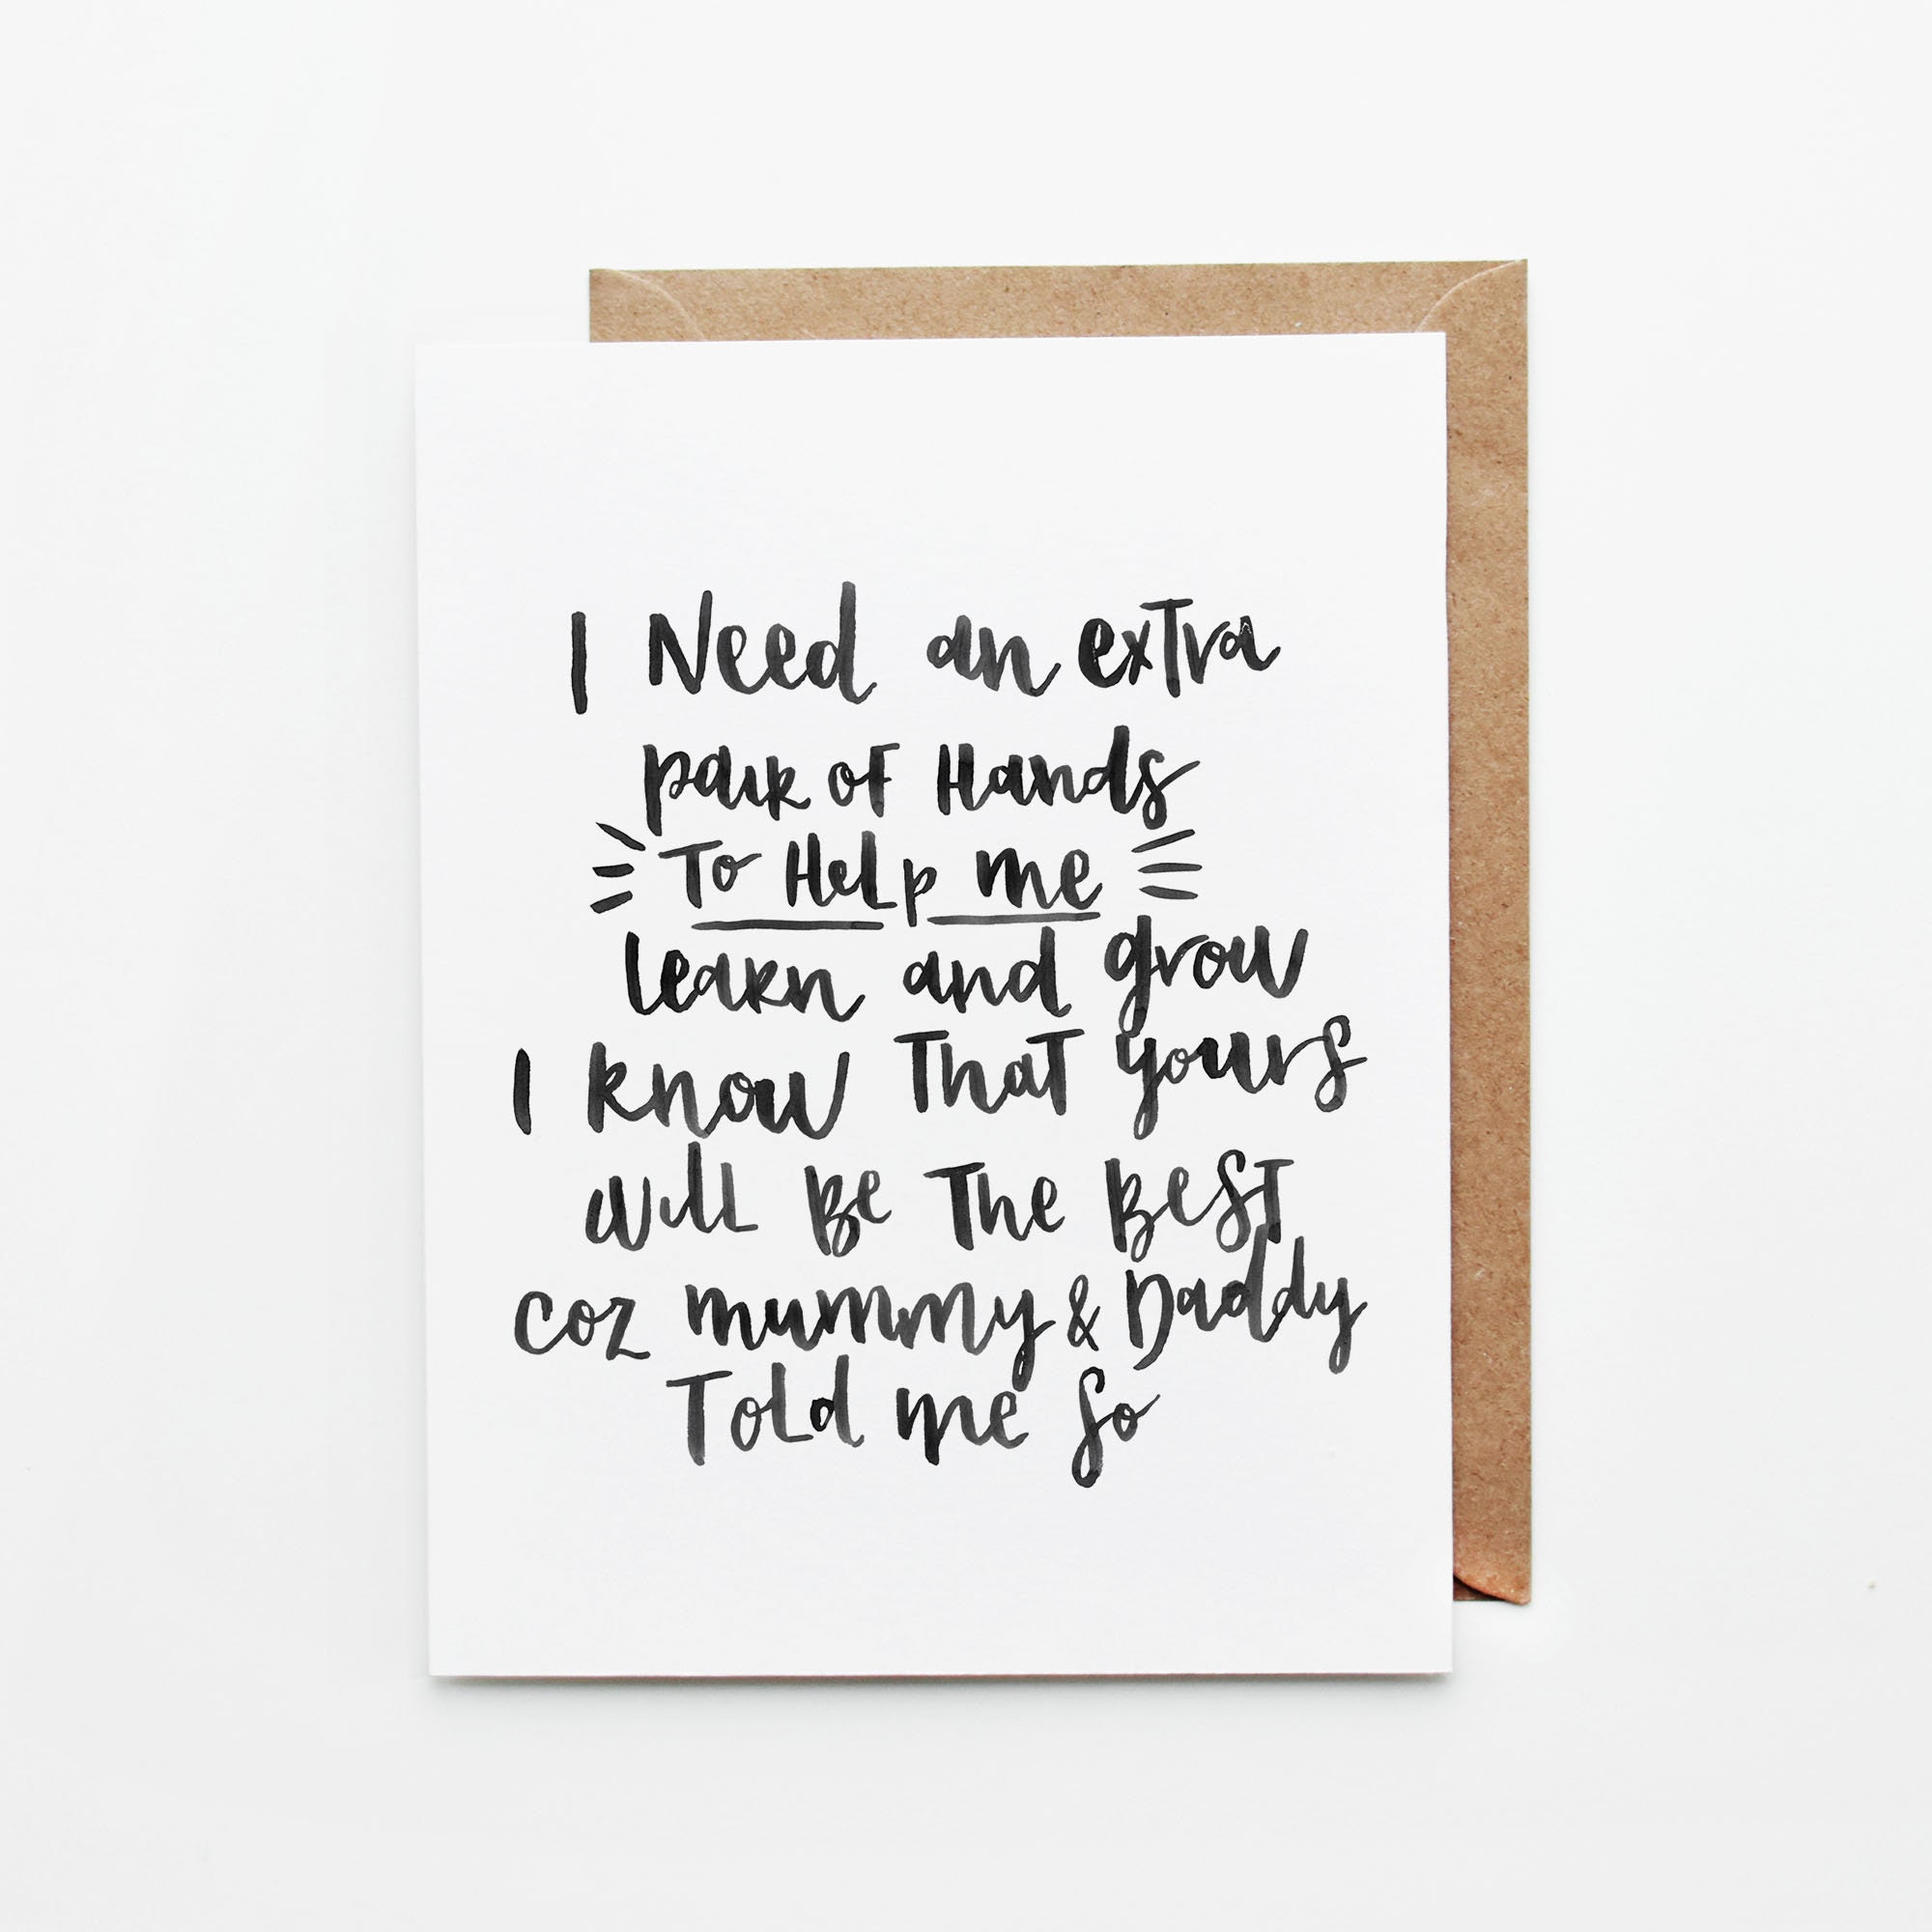 I Need an extra
pair of Hands
To Help me
learn and grow
I know That yours
will Be The Best
coz mummy & Daddy
Told me so